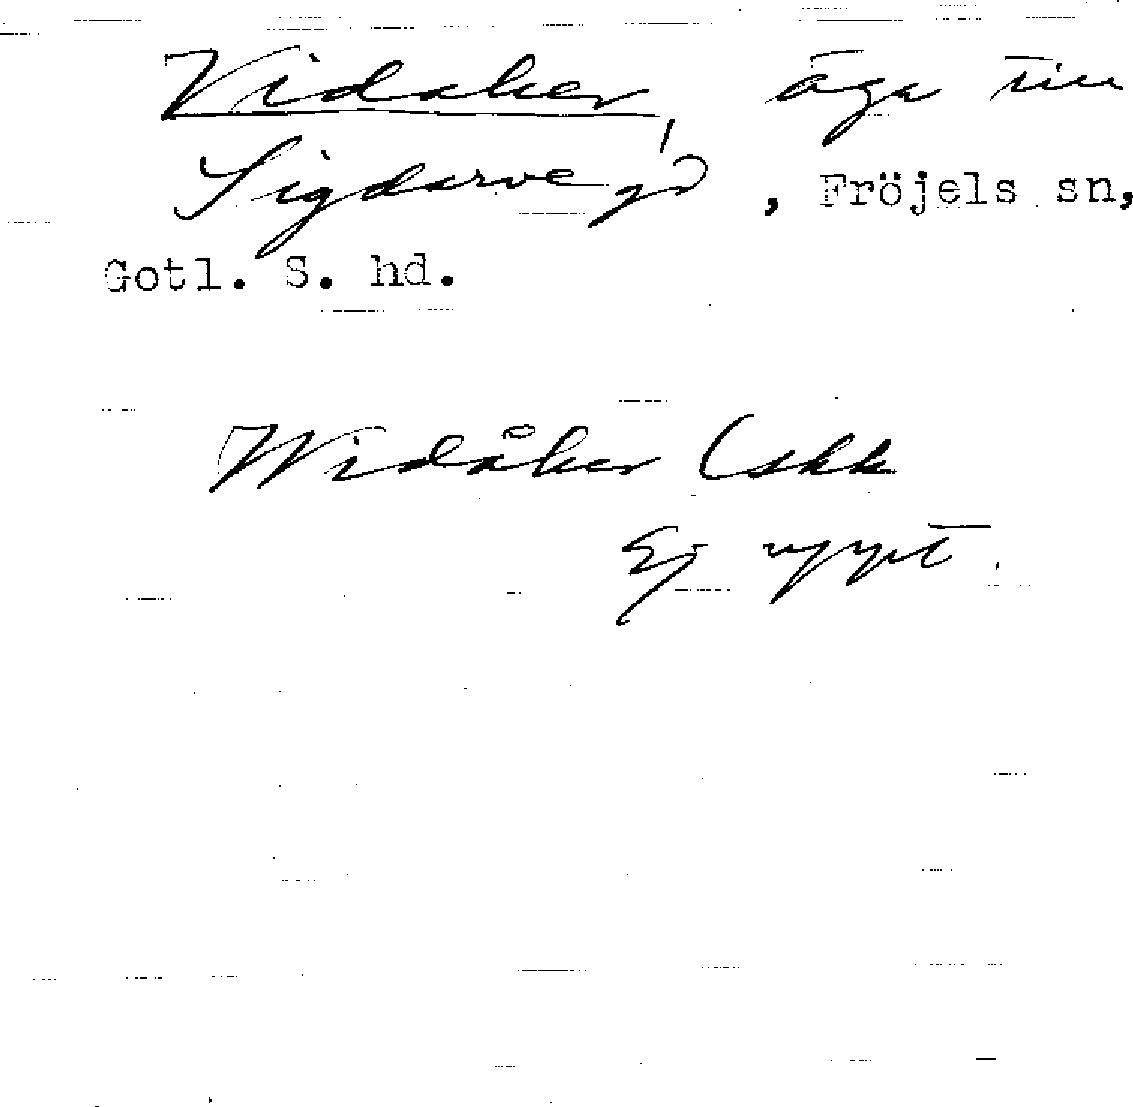 Vidaker, äga till
Sigdarve gd, Fröjels sn,
Gotl. S. hd.
Widåker (skk
Ej